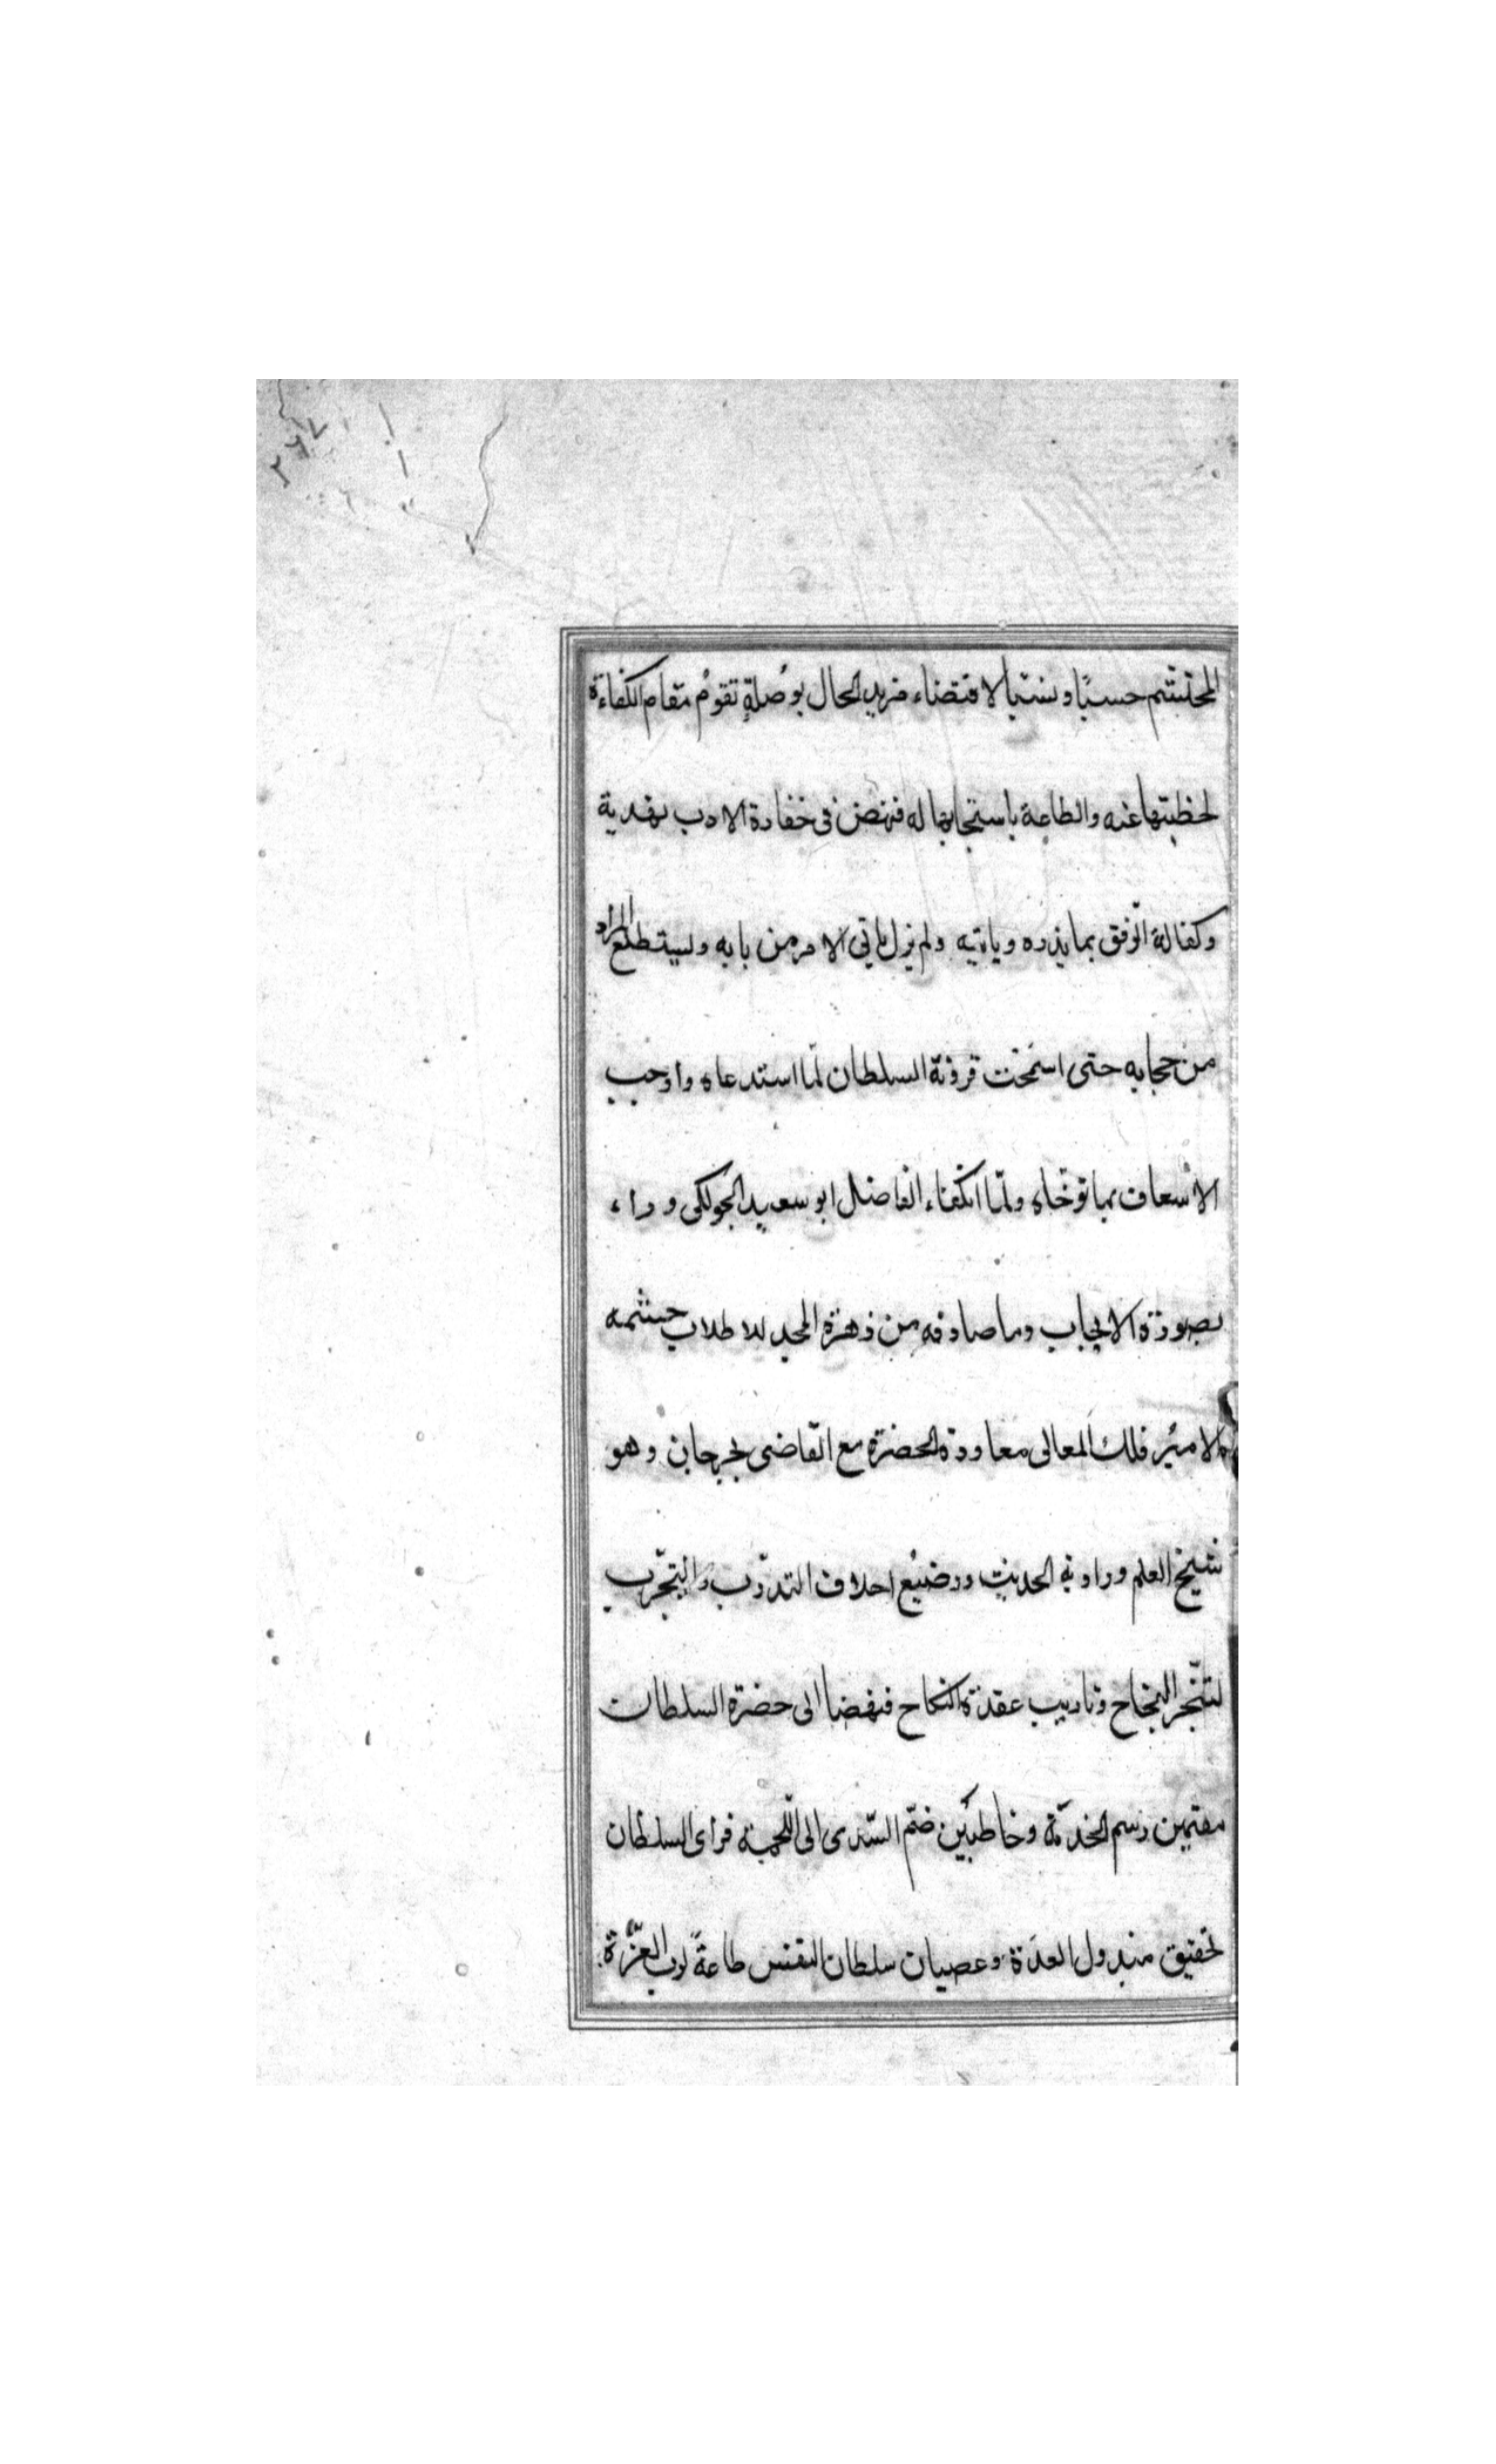 ٢٦٧
المحتشم حسبًا ونسبًا لاقتضاء مزيد الحال بوُصلةٍ تقومُ مقام الكفاءة
لخطبتها عنه والطاعة باستجابها له فنهض فى خفارة الادب بهدية
وكفالة الرفق بما يذره وياتيه ولم يزل ياتى الامر من بابه ويستطلع المراد
من حجابه حتى اسمحت قرونة السلطان لما استدعاه واوجب
الاسعاف بما توخاه ولمّا انكفاء الفاضل ابو سعيد الجولكى وراء
بصورة الايجاب وما صادفه من هزة المجد حشمه
الامير فلك المعالى معاودة الحضرة مع القاضى بجرجان وهو
شيخ العلم وراوية الحديث ورضيع اخلاف التدرّب والتجرّب
لتنجز النجاح وتاريب عقدة النكاح فنهضا الى حضرة السلطان
مقيمين رسم الخدمة وخاطبَين ضمّ السّدى الى اللّحمة فراى السلطان
تحقيق مبذول العدة وعصيان سلطان النفس طاعةً لرب العزّة